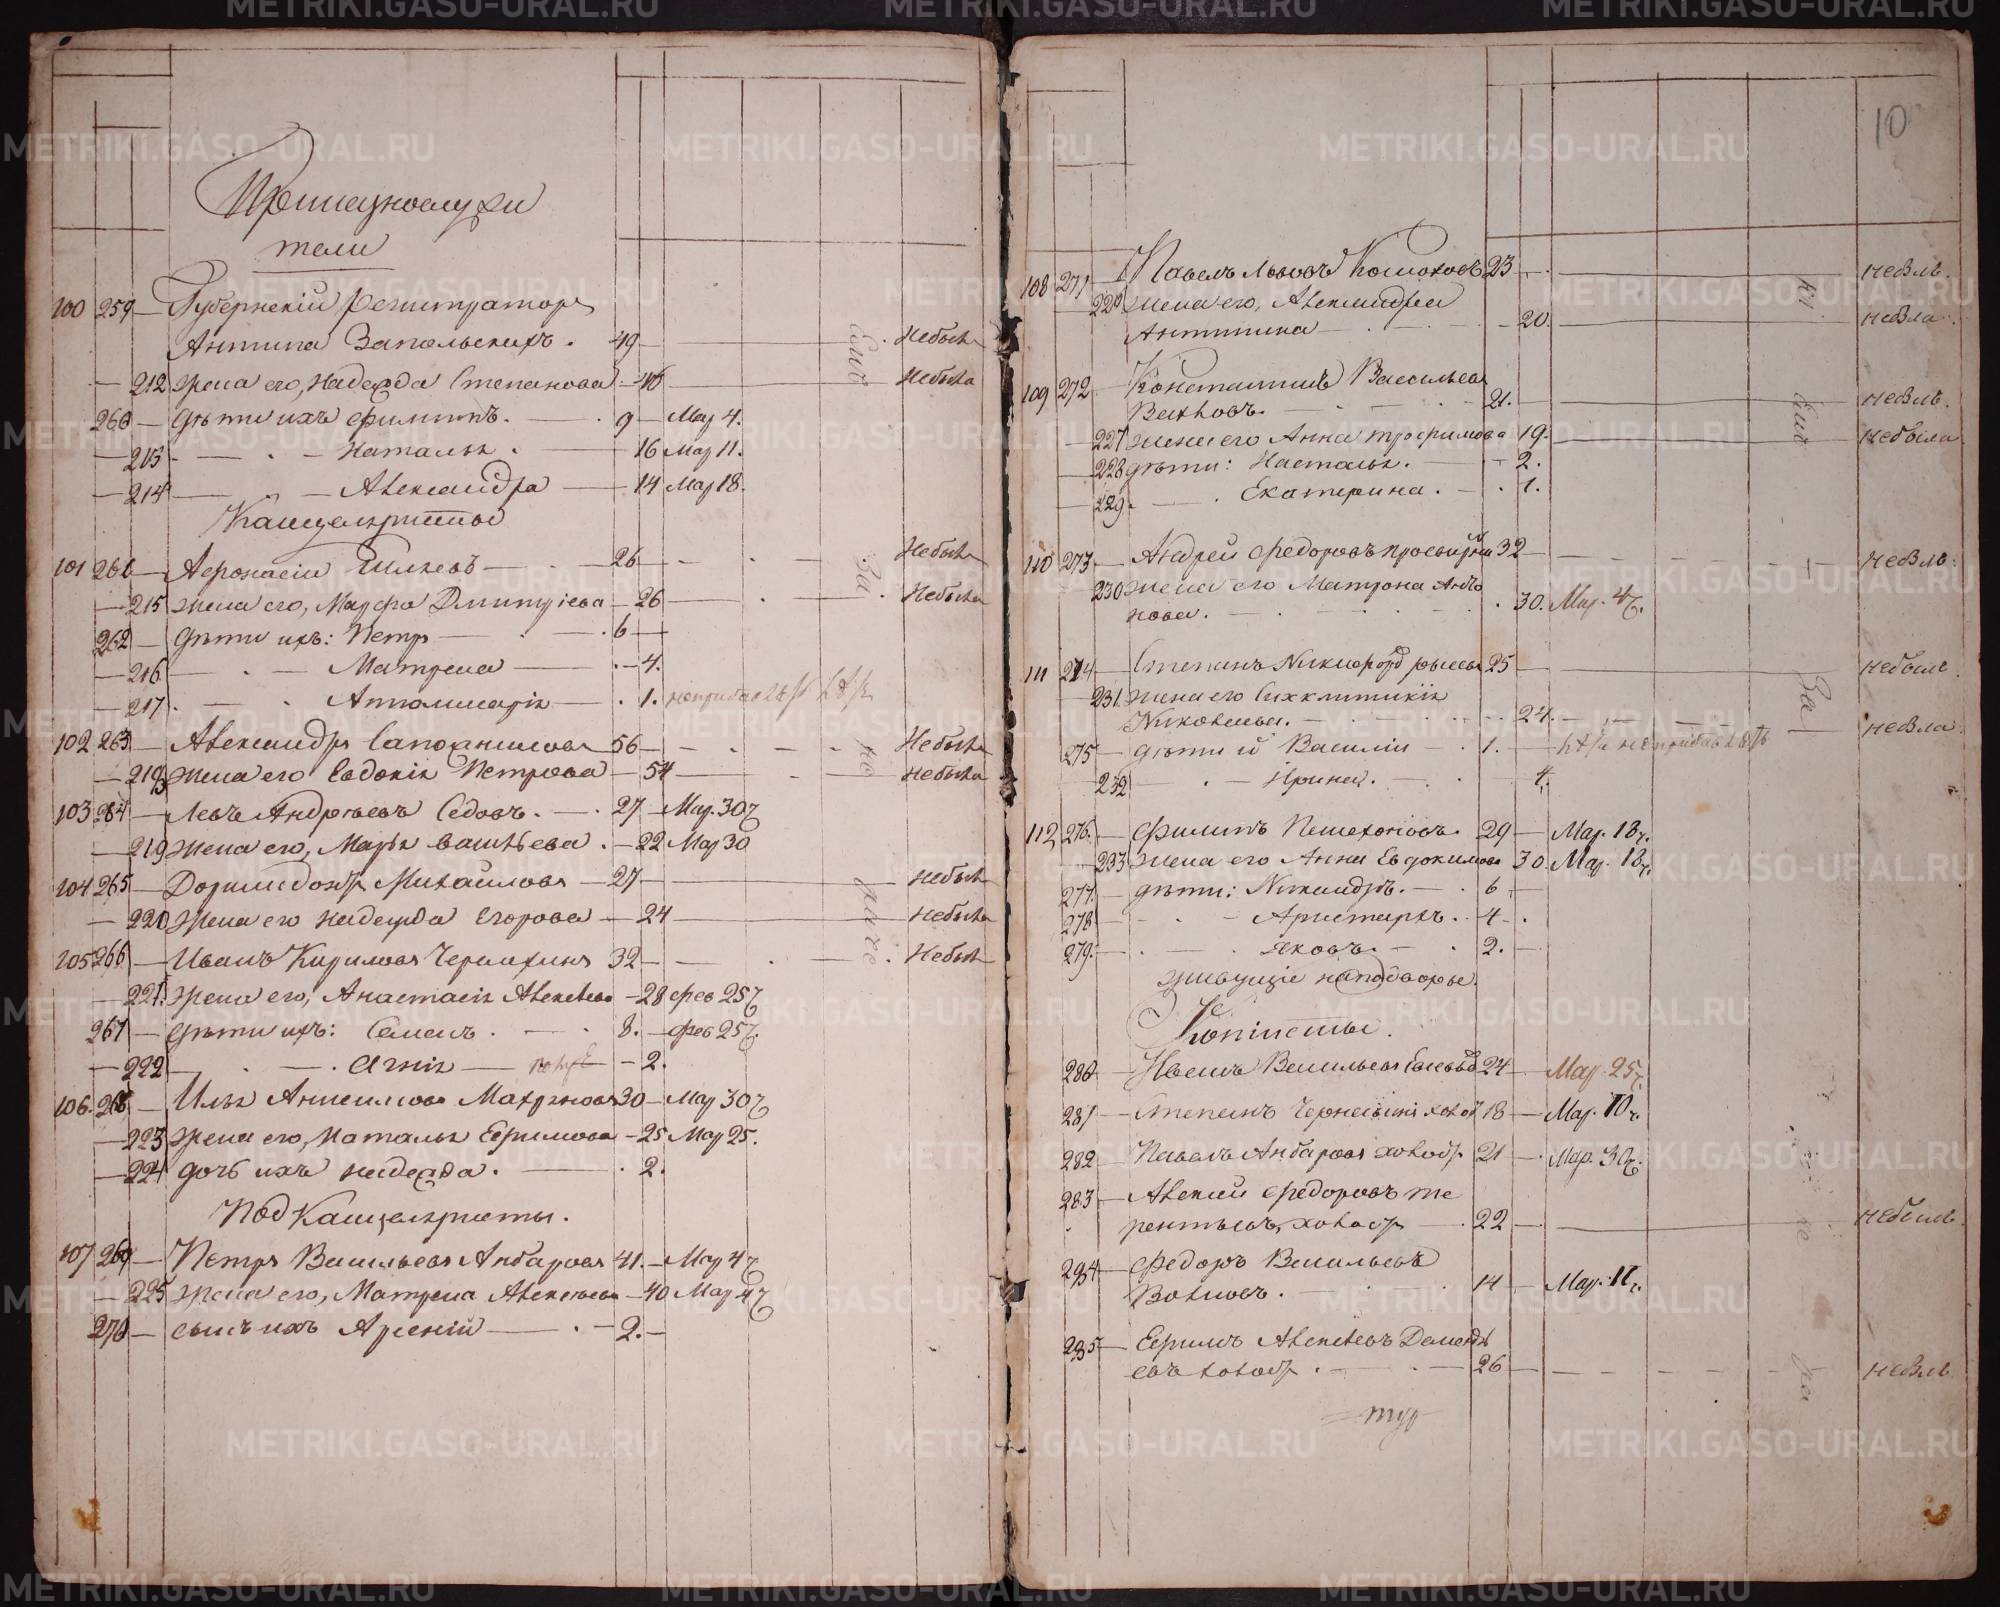 Приказнослужи
тели
100 259 Губернскій регистраторъ
Антипа Запольскихъ. 49 Небылъ
212 жена его, Надежда Степанова 46 Небыла
260 дѣти ихъ Филиппъ. 9 Мар 4.
213 Наталья. 16 Мар 11.
214 Александра 14 Мар 18.
Канцеляристы
101 261 Афонасій 26 Небылъ
215 жена его, Марфа Дмитріева 26 Небыла
262 дѣти ихъ: Петръ 6
216 Матрена 4.
217 Апполинарія 1.
102 263 Александръ 56 Небылъ
218 жена его Евдокія Петрова 54 небыла
103 264 Левъ Андреевъ Седовъ. 27 Мар. 30
219 жена его, Марья Васильева. 22 Мар 30
104 265 Доримедонтъ Михайловъ 27 небылъ
220 жена его Надежда Егорова 24 небыла
105 266 Иванъ Кириловъ 32 Небылъ
221. жена его, Анастасія Алексѣева 28 фев 25
267 дѣти ихъ: Семенъ. 8. фев 25
222 Агнія 2.
106. 268 Илья 30 Мар 30
223 жена его, Наталья Ефимова 25 Мар 25.
224 дочь ихъ Надежда. 2.
Подканцеляристы.
107 269 Петръ Васильевъ Анбаровъ 41. Мар 4
225 жена его, Матрена Алексѣева 40 Мар 4
270 сынъ ихъ Арсеній 2.
10
108 271 Павелъ Львовъ 23 небылъ.
226 жена его, Александра
Антипина 20. небыла.
109 272 Константинъ Васильевъ
21. небылъ.
227 жена его Анна Трофимова 19. небыла
228 дѣти: Наталья. 2.
229. Екатерина. 1.
110 273 Андрей Федоровъ 32 небылъ.
230 жена его Матрона
30. Мар. 4
111 274 Степанъ Никифоровъ 25 небылъ.
231. жена его Сихклитикія
24. небыла.
275 дѣти Василій 1.
232 Ирина. 4.
112 276. Филипъ Пешехоновъ. 29 Мар. 18
233 жена его Анна Евдокимова 30. Мар. 18
277. дѣти: Никандръ. 6
278 Аристархъ. 4
279. Яковъ. 2.
живущіе наподворье.
Копіисты.
280. Иванъ Васильевъ 24 Мар. 25
281 Степанъ 18 Мар. 10
282 Павелъ Анбаровъ холостъ 21 Мар. 30
283 Алексій Федоровъ Те
рентьевъ, холостъ 22 небылъ.
284 Федоръ Васильевъ
Волковъ. 14 Мар. 11
285 Ефимъ Алексѣевъ Дементь
евъ холостъ. 26 небылъ
METRIKI.GASO-URAL.RU